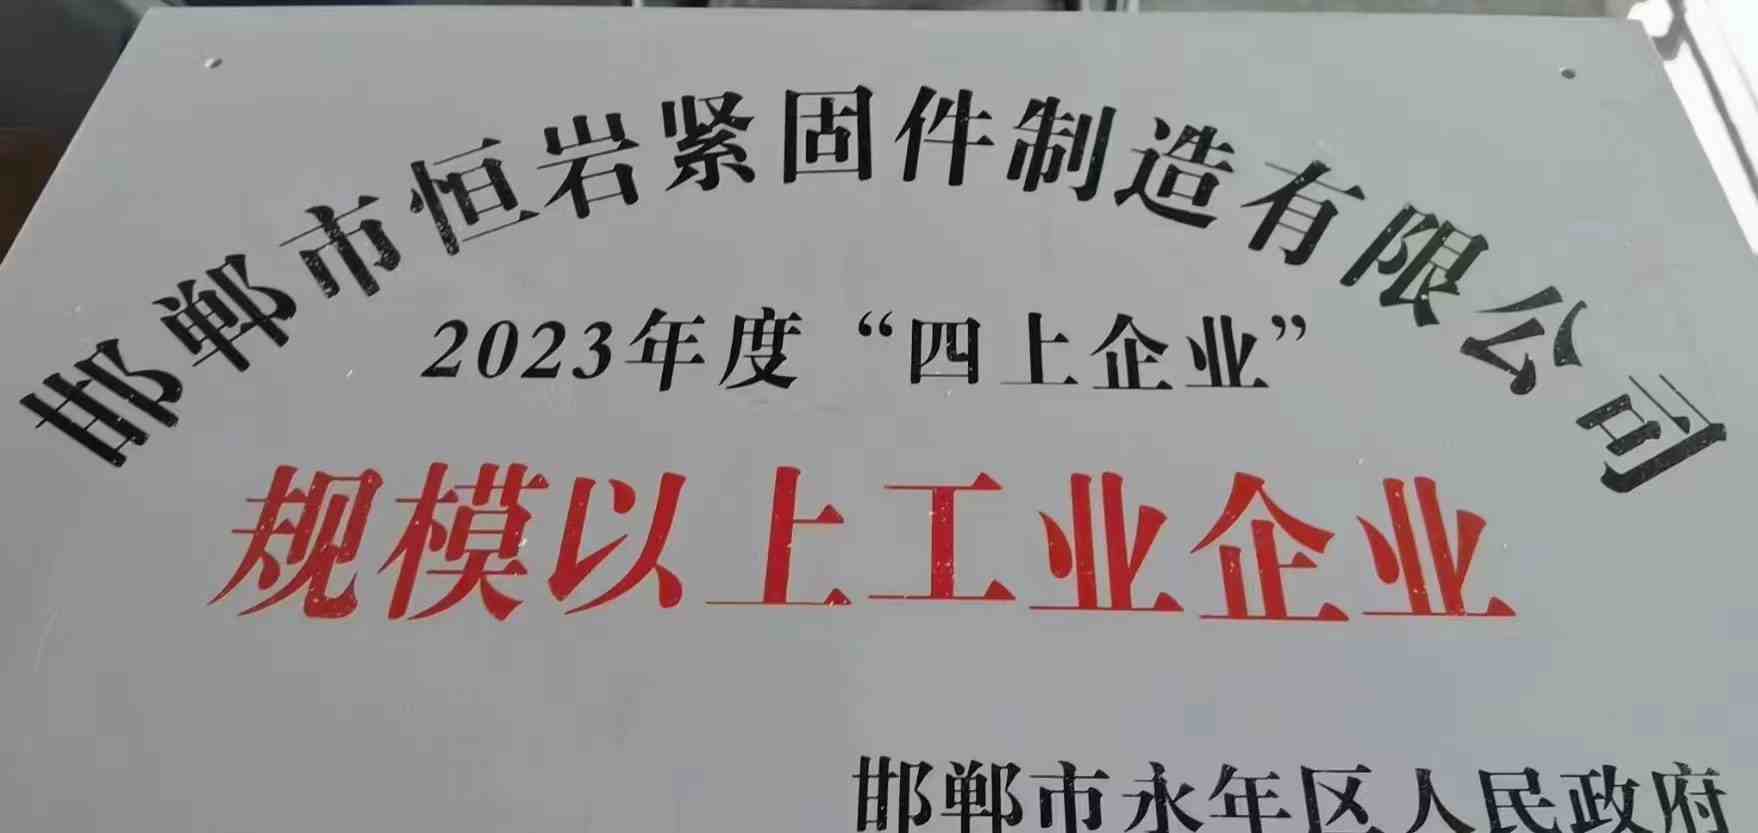 邯郸市恒岩紧固件制造有限公司
2023年度“四上企业”
规模以上工业企业
邯郸市永年区人民政府